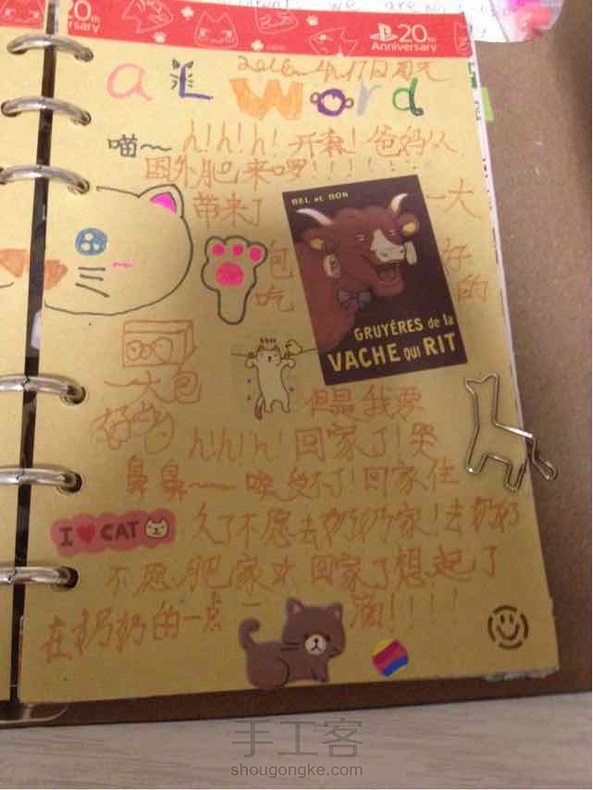 20th
Anniversary
20th
Anniversary
aLword
喵~~ h!h!h! 开森!爸妈从
国外肥来啰!!!!!
带来了
一大
BEL et BON
包
好
吃
的
GRUYÈRES de la
VACHE QUI RIT
一大包
好吃的
但是我要
h!h!h!回家了!哭
鼻鼻~~唉 受不了!回家住
I CAT
久了不愿去奶奶家!去奶奶
不愿肥家 回家了想起了
在奶奶的一点一滴!!!!
手工客
shougongke.com